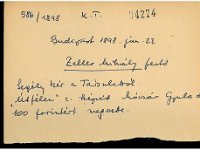 986/1898 K.T. 4274
Budapest 1898. jun. 22
Zeller Mihály festő
Segély kér a Társulattól.
"Útfélen" c. képét Kácsér Gyula
100 forintért megvette.